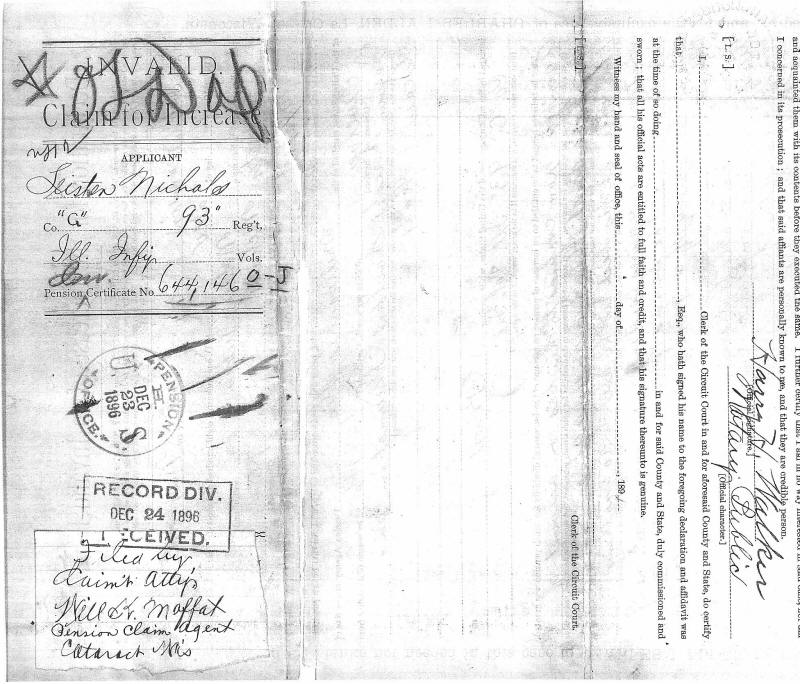 INVALID.
Claim for Increase
APPLICANT
Nichols
Co. "G" 93" Reg't,
Ill. Infty Vols.
Inv.
Pension Certificate No. 644,146
U. S. PENSION OFFICE.
DEC
23
1896
RECORD DIV.
DEC 24 1896
RECEIVED.
Filed by
Claim't Atty's
Will Moffat
Pension Claim Agent
Cataract Wis
[L. S.]
Witness my hand and seal of office, this day of , 189
Clerk of the Circuit Court.
sworn ; that all his official acts are entitled to full faith and credit, and that his signature thereunto is genuine.
at the time of so doing in and for said County and State, duly commissioned and
that , Esq., who hath signed his name to the foregoing declaration and affidavit was
I, Clerk of the Circuit Court in and for aforesaid County and State, do certify
[L. S.]
Notary Public
[Official character.]
Harry H. Walker
[Official Signature.]
I concerned in its prosecution ; and that said affiants are personally known to me, and that they are credible person.
and acquainted them with its contents before they executed the same. I further certify that I am in no way interested in said